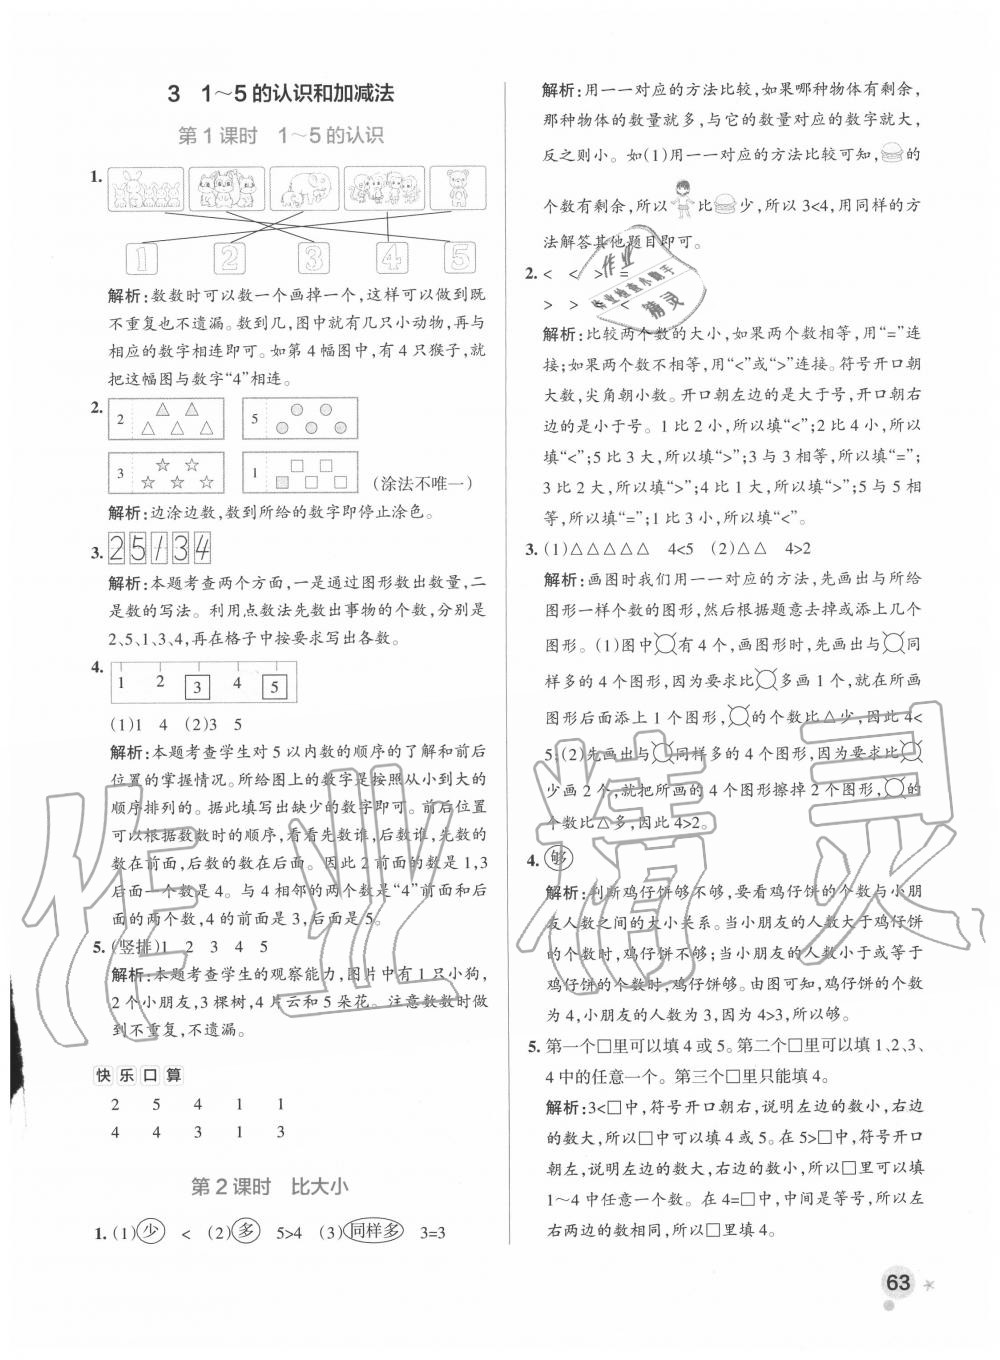 3 1～5的认识和加减法
第1课时 1～5的认识
1.
1 2 3 4 5
解析:数数时可以数一个画掉一个,这样可以做到既
不重复也不遗漏。数到几,图中就有几只小动物,再与
相应的数字相连即可。如第4幅图中,有4只猴子,就
把这幅图与数字“4”相连。
2. 2 △△△△△ 5 ○○○○○
3 ☆☆☆☆☆ 1 □□□□□ (涂法不唯一)
解析:边涂边数,数到所给的数字即停止涂色。
3. 2 5 1 3 4
解析:本题考查两个方面,一是通过图形数出数量,二
是数的写法。利用点数法先数出事物的个数,分别是
2、5、1、3、4,再在格子中按要求写出各数。
4. 1 2 3 4 5
(1)1 4 (2)3 5
解析:本题考查学生对5以内数的顺序的了解和前后
位置的掌握情况。所给图上的数字是按照从小到大的
顺序排列的。据此填写出缺少的数字即可。前后位置
可以根据数数时的顺序,看看先数谁,后数谁,先数的
数在前面,后数的数在后面。因此2前面的数是1,3
后面一个数是4。与4相邻的两个数是“4”前面和后
面的两个数,4的前面是3,后面是5。
5. (竖排)1 2 3 4 5
解析:本题考查学生的观察能力,图片中有1只小狗,
2个小朋友,3棵树,4片云和5朵花。注意数数时做
到不重复,不遗漏。
快乐口算
2 5 4 1 1
4 4 3 1 3
第2课时 比大小
1. (1)少 < (2)多 5>4 (3)同样多 3=3
解析:用一一对应的方法比较,如果哪种物体有剩余,
那种物体的数量就多,与它的数量对应的数字就大,
反之则小。如(1)用一一对应的方法比较可知,的
个数有剩余,所以比少,所以3<4,用同样的方
法解答其他题目即可。
2. < < > =
> > = <
解析:比较两个数的大小,如果两个数相等,用“=”连
接;如果两个数不相等,用“<”或“>”连接。符号开口朝
大数,尖角朝小数。开口朝左边的是大于号,开口朝右
边的是小于号。1比2小,所以填“<”;2比4小,所以
填“<”;5比3大,所以填“>”;3与3相等,所以填“=”;
3比2大,所以填“>”;4比1大,所以填“>”;5与5相
等,所以填“=”;1比3小,所以填“<”。
3. (1)△△△△△ 4<5 (2)△△ 4>2
解析:画图时我们用一一对应的方法,先画出与所给
图形一样个数的图形,然后根据题意去掉或添上几个
图形。(1)图中有4个,画图形时,先画出与同
样多的4个图形,因为要求比多画1个,就在所画
图形后面添上1个图形,的个数比△少,因此4<
5;(2)先画出与同样多的4个图形,因为要求比
少画2个,就把所画的4个图形擦掉2个图形,的
个数比△多,因此4>2。
4. 够
解析:判断鸡仔饼够不够,要看鸡仔饼的个数与小朋
友人数之间的大小关系。当小朋友的人数大于鸡仔饼
的个数时,鸡仔饼不够;当小朋友的人数小于或等于
鸡仔饼的个数时,鸡仔饼够。由图可知,鸡仔饼的个数
为4,小朋友的人数为3,因为4>3,所以够。
5. 第一个□里可以填4或5。第二个□里可以填1、2、3、
4中的任意一个。第三个□里只能填4。
解析:3<□中,符号开口朝右,说明左边的数小,右边
的数大,所以□中可以填4或5。在5>□中,符号开口
朝左,说明左边的数大,右边的数小,所以□里可以填
1～4中任意一个数。在4=□中,中间是等号,所以左
右两边的数相同,所以□里填4。
63
作业
作业检查小助手
精灵
作业精灵